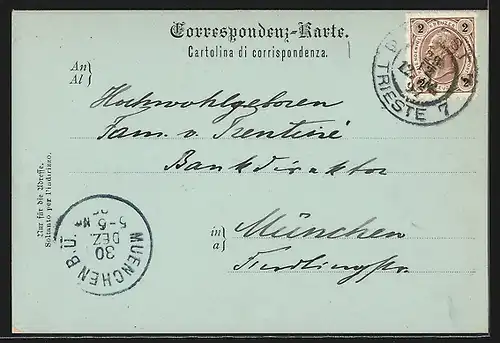 Correspondenz-Karte.
Cartolina di corrispondenza.
2 2
TRIESTE 7
An
Al
Hochwohlgeboren
Fam. v. Trentini
Bankdirektor
in
a
München
Nur für die Adresse.
Soltanto per l'indirizzo.
MUENCHEN B.Ü.
30
DEZ.
5-6 N